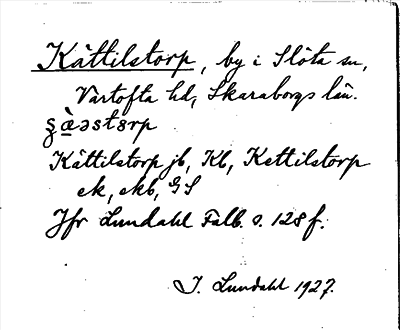 Kättilstorp, by i Slöta sn,
Vartofta hd, Skaraborgs län.
Kättilstorp jb, Kb, Kettilstorp
ek, ekb, GS
Jfr Lundahl Falb. s. 128 f.
I. Lundahl 1927.